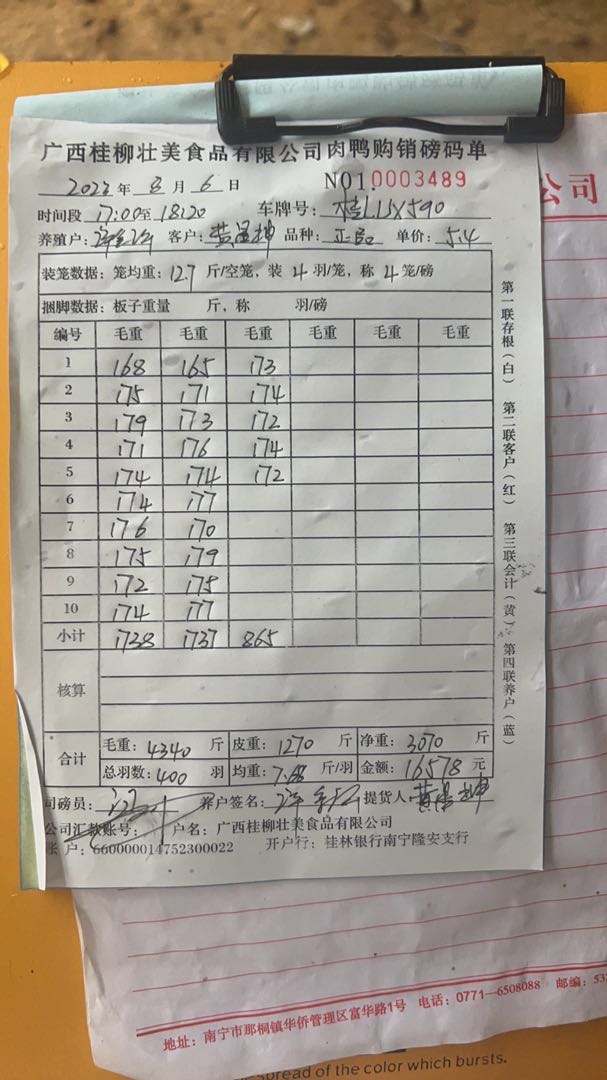 广西桂柳壮美食品有限公司肉鸭购销磅码单
2023年8月6日 NO1.0003489
时间段 17:00至18:20 车牌号:
养殖户: 客户: 品种: 正品 单价: 5.4
装笼数据:笼均重:12.7斤/空笼,装4羽/笼,称4笼/磅
捆脚数据:板子重量 斤,称 羽/磅
编号 毛重 毛重 毛重 毛重 毛重 毛重
1 168 165 173
2 175 171 174
3 179 173 172
4 171 176 174
5 174 174 172
6 174 177
7 176 170
8 175 179
9 172 175
10 174 177
小计 1738 1737 865
核算
合计 毛重:4340斤 皮重:1270斤 净重:3070斤
总羽数:400羽 均重:7.68斤/羽 金额:16578元
司磅员: 养户签名: 提货人:
公司汇款账号: 户名:广西桂柳壮美食品有限公司
账户:660000014752300022 开户行:桂林银行南宁隆安支行
第一联存根(白) 第二联客户(红) 第三联会计(黄) 第四联养户(蓝)
公司
地址:南宁市那桐镇华侨管理区富华路1号 电话:0771—6508088 邮编:53
spread of the color which bursts.